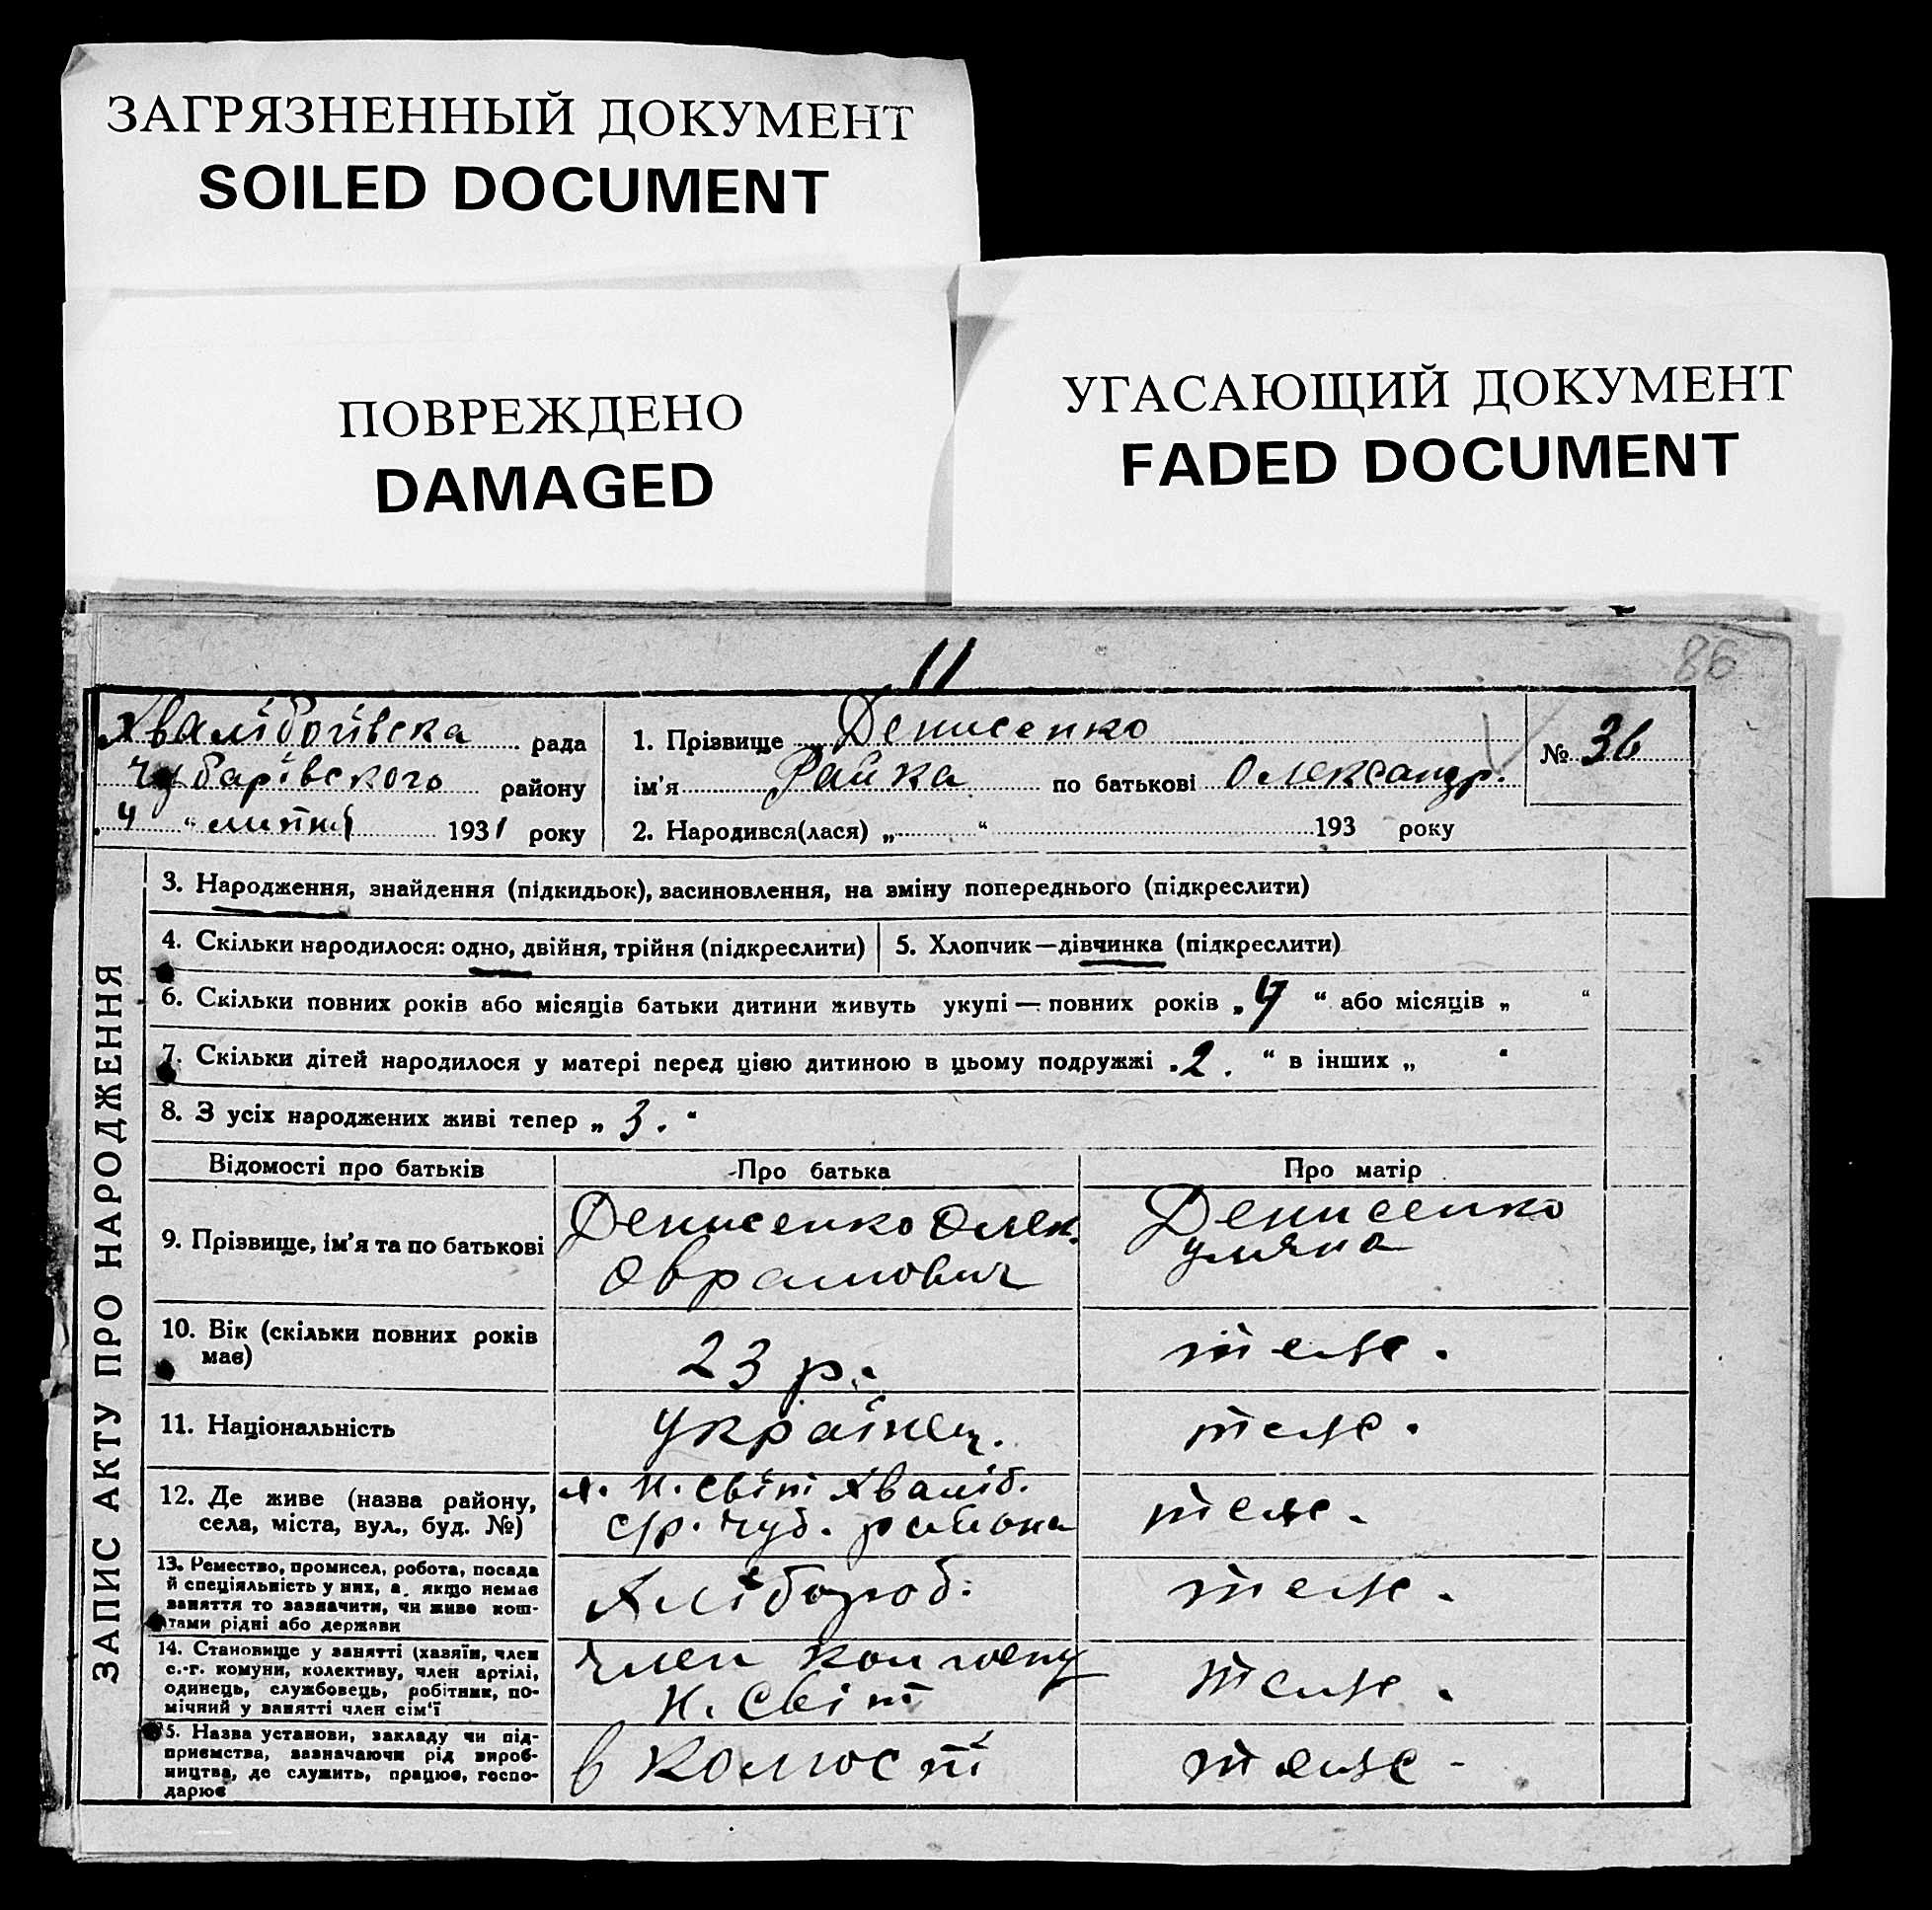 ЗАГРЯЗНЕННЫЙ ДОКУМЕНТ
SOILED DOCUMENT
ПОВРЕЖДЕНО
DAMAGED
УГАСАЮЩИЙ ДОКУМЕНТ
FADED DOCUMENT
11
86
Хвалібогівська рада
Чубарівського району
4 " липня 1931 року
1. Прізвище Денисенко
ім'я Райка по батькові Олександр.
2. Народився(лася) „ “ 193 року
№ 36
ЗАПИС АКТУ ПРО НАРОДЖЕННЯ
3. Народження, знайдення (підкидьок), засиновлення, на зміну попереднього (підкреслити)
4. Скільки народилося: одно, двійня, трійня (підкреслити)
5. Хлопчик—дівчинка (підкреслити)
6. Скільки повних років або місяців батьки дитини живуть укупі — повних років „ 4 “ або місяців „ “
7. Скільки дітей народилося у матері перед цією дитиною в цьому подружжі „ 2. “ в інших „ “
8. З усіх народжених живі тепер „ 3. “
Відомості про батьків Про батька Про матір
9. Прізвище, ім'я та по батькові
Денисенко Олек.
Оврамович
Денисенко
Уляна
10. Вік (скільки повних років
має)
23 р.
теже.
11. Національність
Українец.
теже.
12. Де живе (назва району,
села, міста, вул., буд. №)
х. Н. Світ Хваліб.
с/р. Чуб. района
теже.
13. Ремество, промисел, робота, посада
й спеціяльність у них, а якщо немає
заняття то зазначити, чи живе кош-
тами рідні або держави
Хлібороб.
теже.
14. Становище у занятті (хазяїн, член
с.-г. комуни, колективу, член артілі,
одинець, службовець, робітник, по-
мічний у занятті член сім'ї
член
Н. Світ
теже.
15. Назва установи, закладу чи під-
приємства, зазначаючи рід вироб-
ництва, де служить, працює, госпо-
дарює
в
теже -